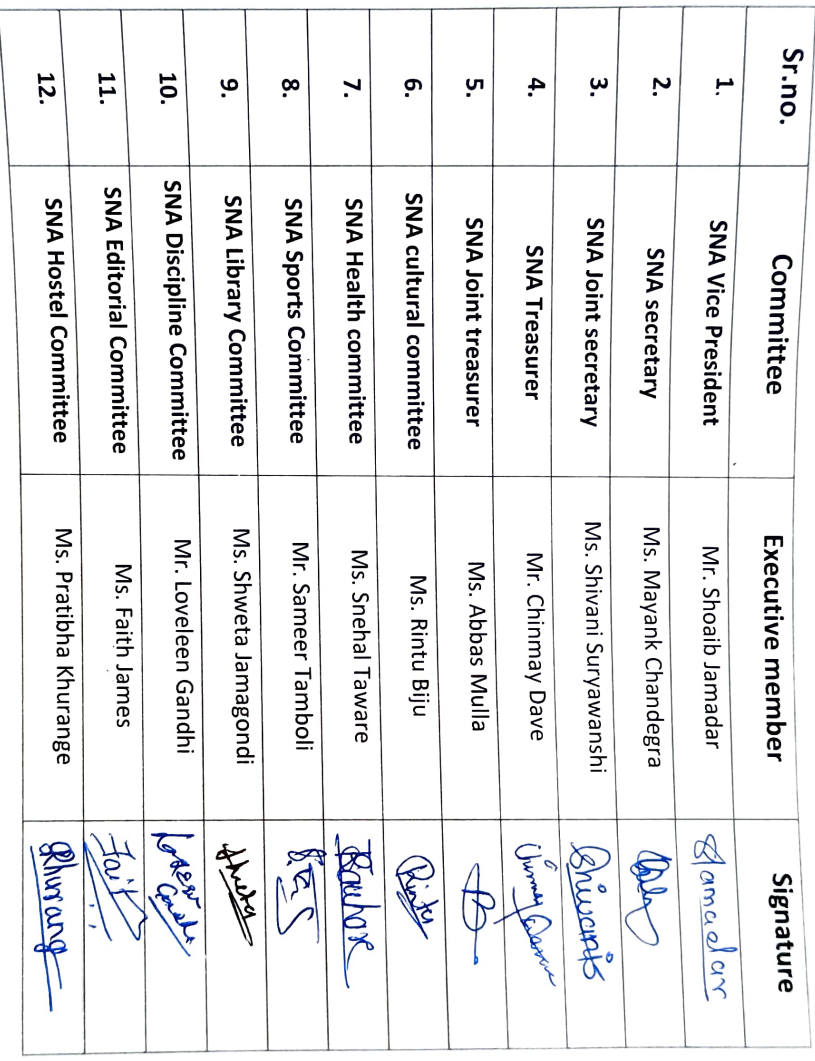 Sr.no. Committee Executive member Signature
1. SNA Vice President Mr. Shoaib Jamadar Jamadar
2. SNA secretary Ms. Mayank Chandegra
3. SNA Joint secretary Ms. Shivani Suryawanshi Shivani
4. SNA Treasurer Mr. Chinmay Dave
5. SNA Joint treasurer Ms. Abbas Mulla
6. SNA cultural committee Ms. Rintu Biju Rintu
7. SNA Health committee Ms. Snehal Taware
8. SNA Sports Committee Mr. Sameer Tamboli
9. SNA Library Committee Ms. Shweta Jamagondi
10. SNA Discipline Committee Mr. Loveleen Gandhi
11. SNA Editorial Committee Ms. Faith James Faith
12. SNA Hostel Committee Ms. Pratibha Khurange